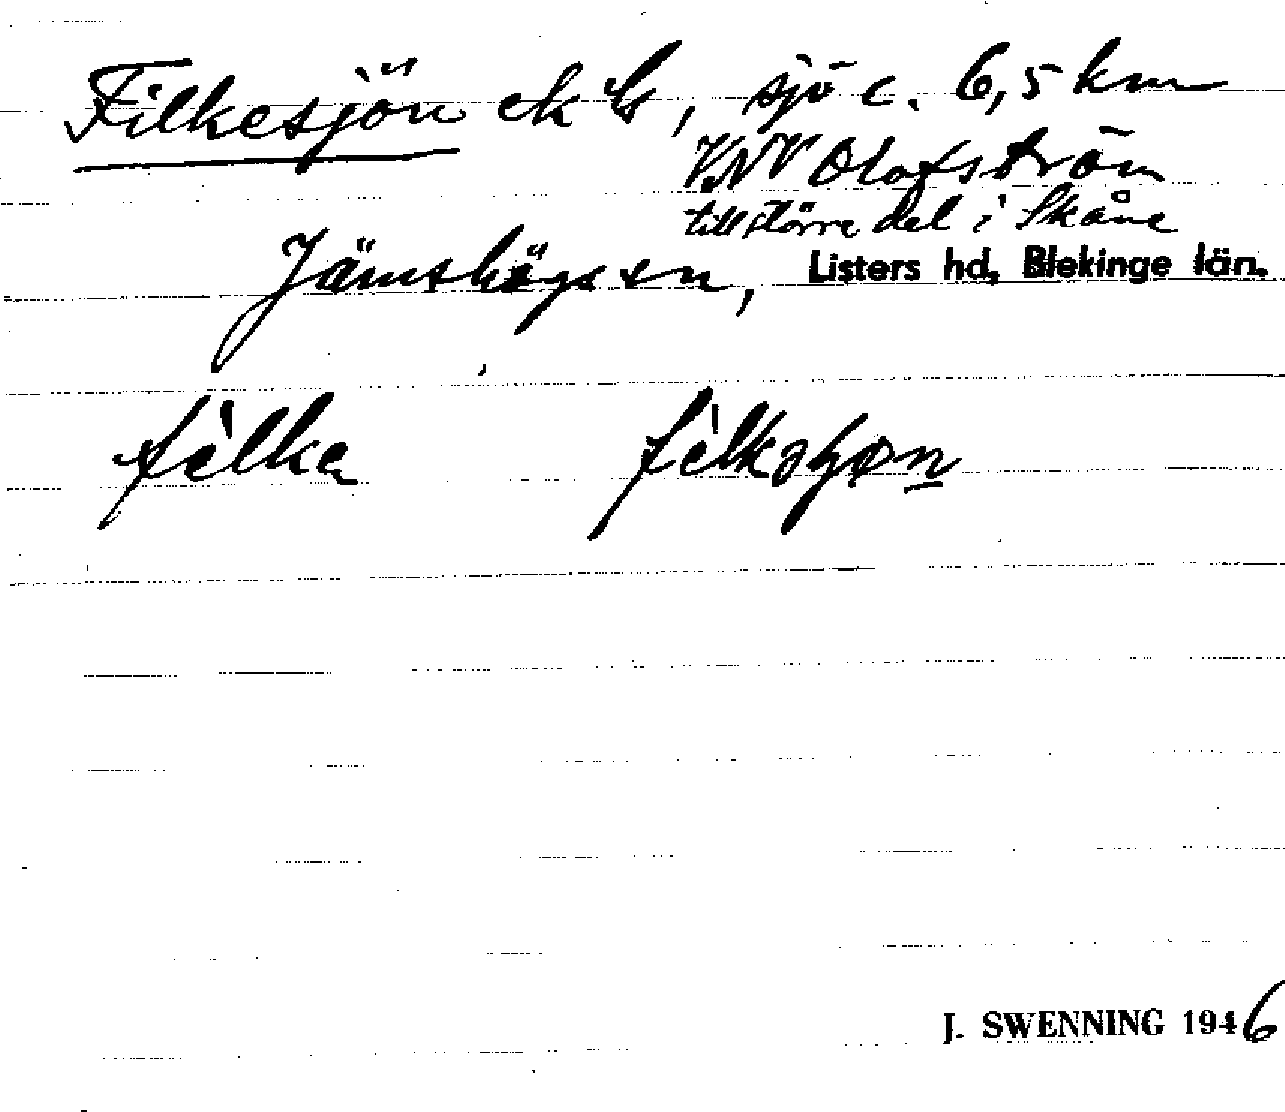 Filkesjön ek G, sjö c. 6,5 km
VNV Olofström
till större del i Skåne
Jämshögs sn, Listers hd, Blekinge län.
filka filkasjøn
J. SWENNING 1946